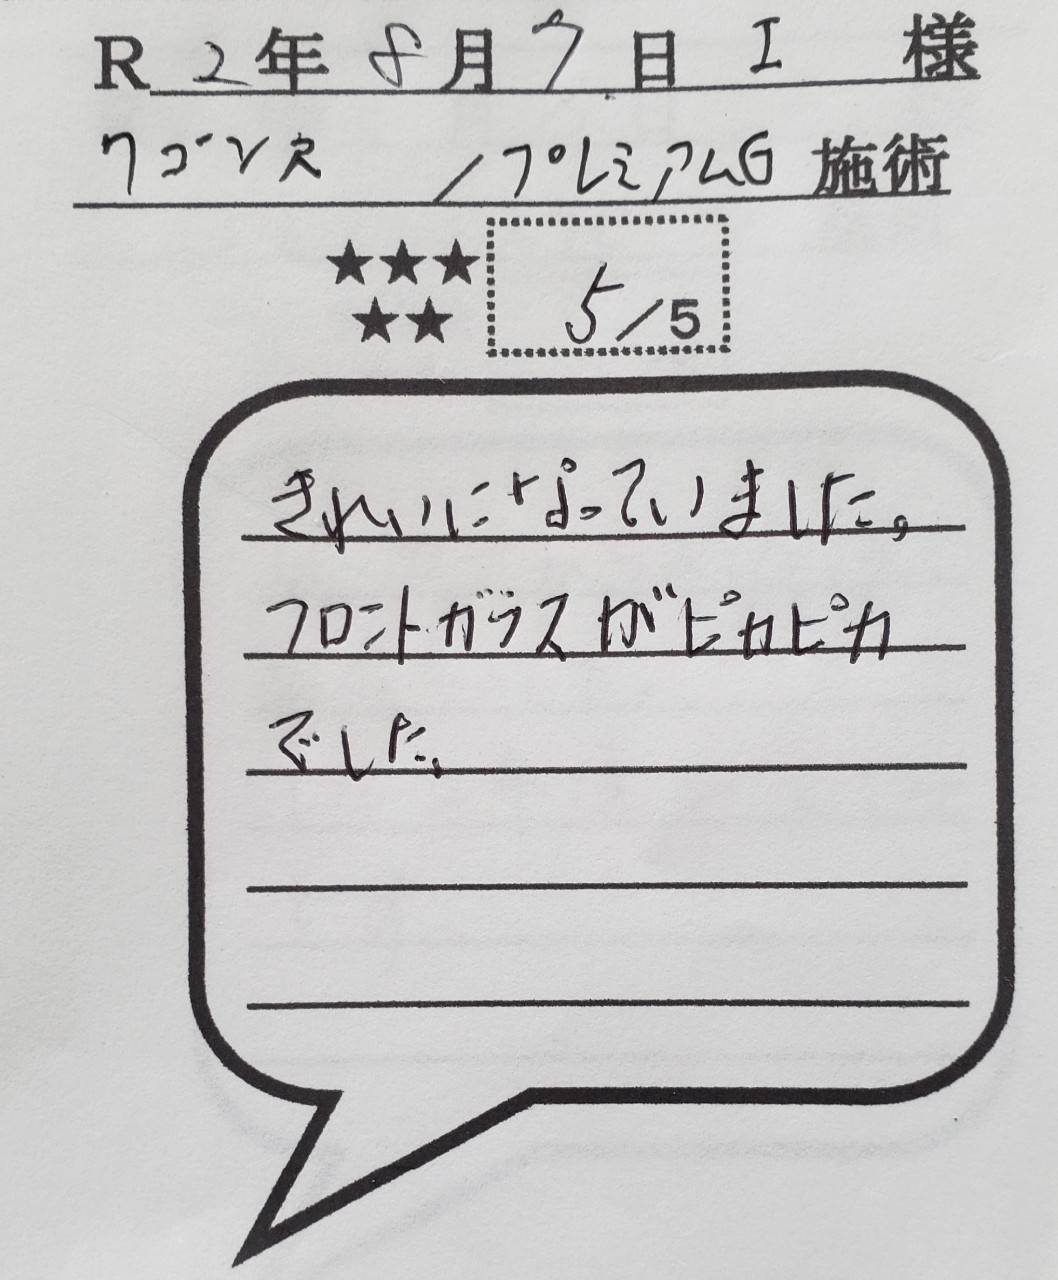 R 2年 8月 7日 I 様
ワゴンR /プレミアムG 施術
★★★
★★
5/5
きれいになっていました。
フロントガラスがピカピカ
でした。